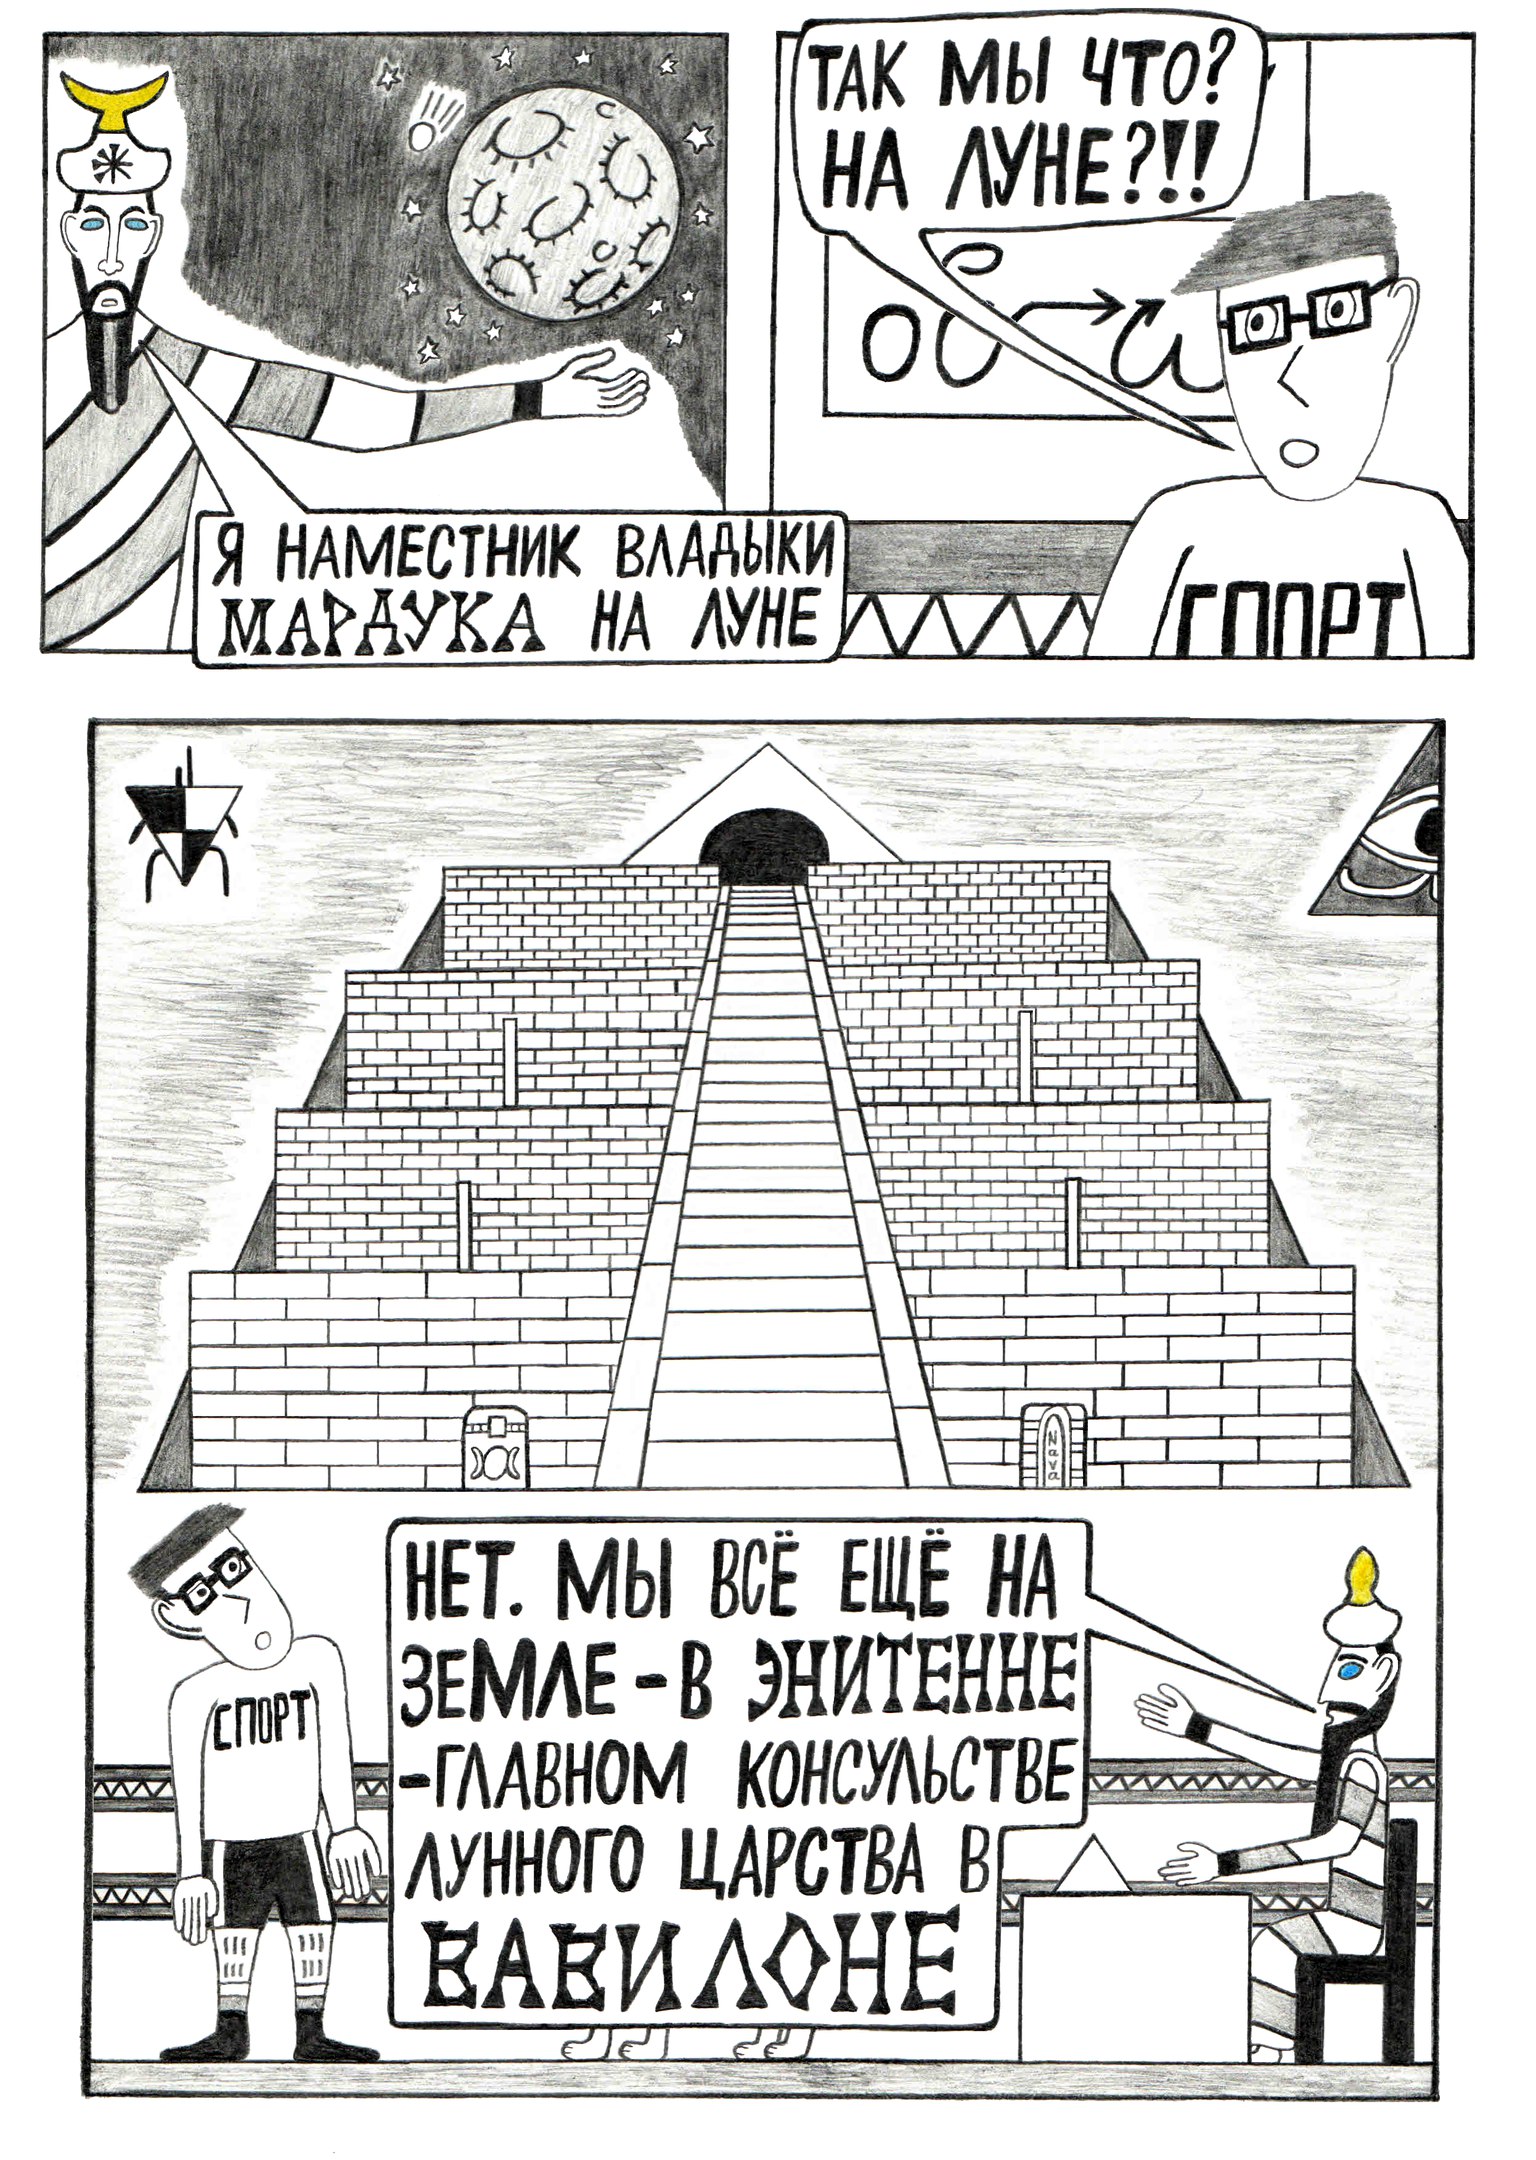 Я НАМЕСТНИК ВЛАДЫКИ
МАРДУКА НА ЛУНЕ
ТАК МЫ ЧТО?
НА ЛУНЕ?!!
СПОРТ
Nava
СПОРТ
НЕТ. МЫ ВСЁ ЕЩЁ НА
ЗЕМЛЕ - В ЭНИТЕННЕ
- ГЛАВНОМ КОНСУЛЬСТВЕ
ЛУННОГО ЦАРСТВА В
ВАВИЛОНЕ